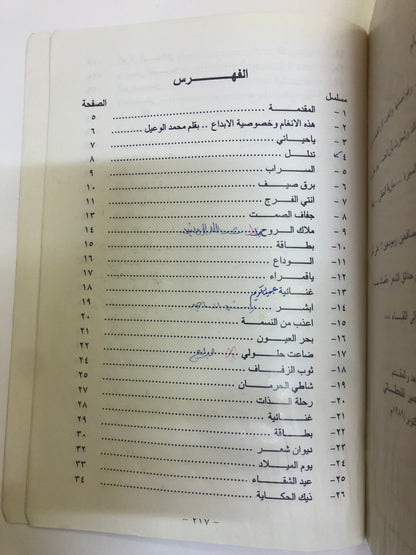 الفهرس
مسلسل الصفحة
١- المقدمة ٥
٢- هذه الانغام وخصوصية الابداع .. بقلم محمد الوعيل ٦
٣- ياحياتي ٧
٤- تدلل ٨
٥- السراب ٩
٦- برق صيف ١٠
٧- انتي الفرج ١١
٨- جفاف الصمت ١٣
٩- ملاك الروح ١٤
١٠- بطاقة ١٥
١١- الوداع ١٦
١٢- ياقمراء ١٧
١٣- غنائية ١٨
١٤- ابشر ١٩
١٥- اعذب من النسمة ٢٠
١٦- بحر العيون ٢١
١٧- ضاعت حلولي ٢٢
١٨- ثوب الزفاف ٢٤
١٩- شاطي الحرمان ٢٥
٢٠- رحلة الذات ٢٧
٢١- غنائية ٢٨
٢٢- بطاقة ٢٩
٢٣- ديوان شعر ٣٠
٢٤- يوم الميلاد ٣٢
٢٥- عيد الشقاء ٣٣
٢٦- ذيك الحكاية ٣٤
- ٢١٧ -